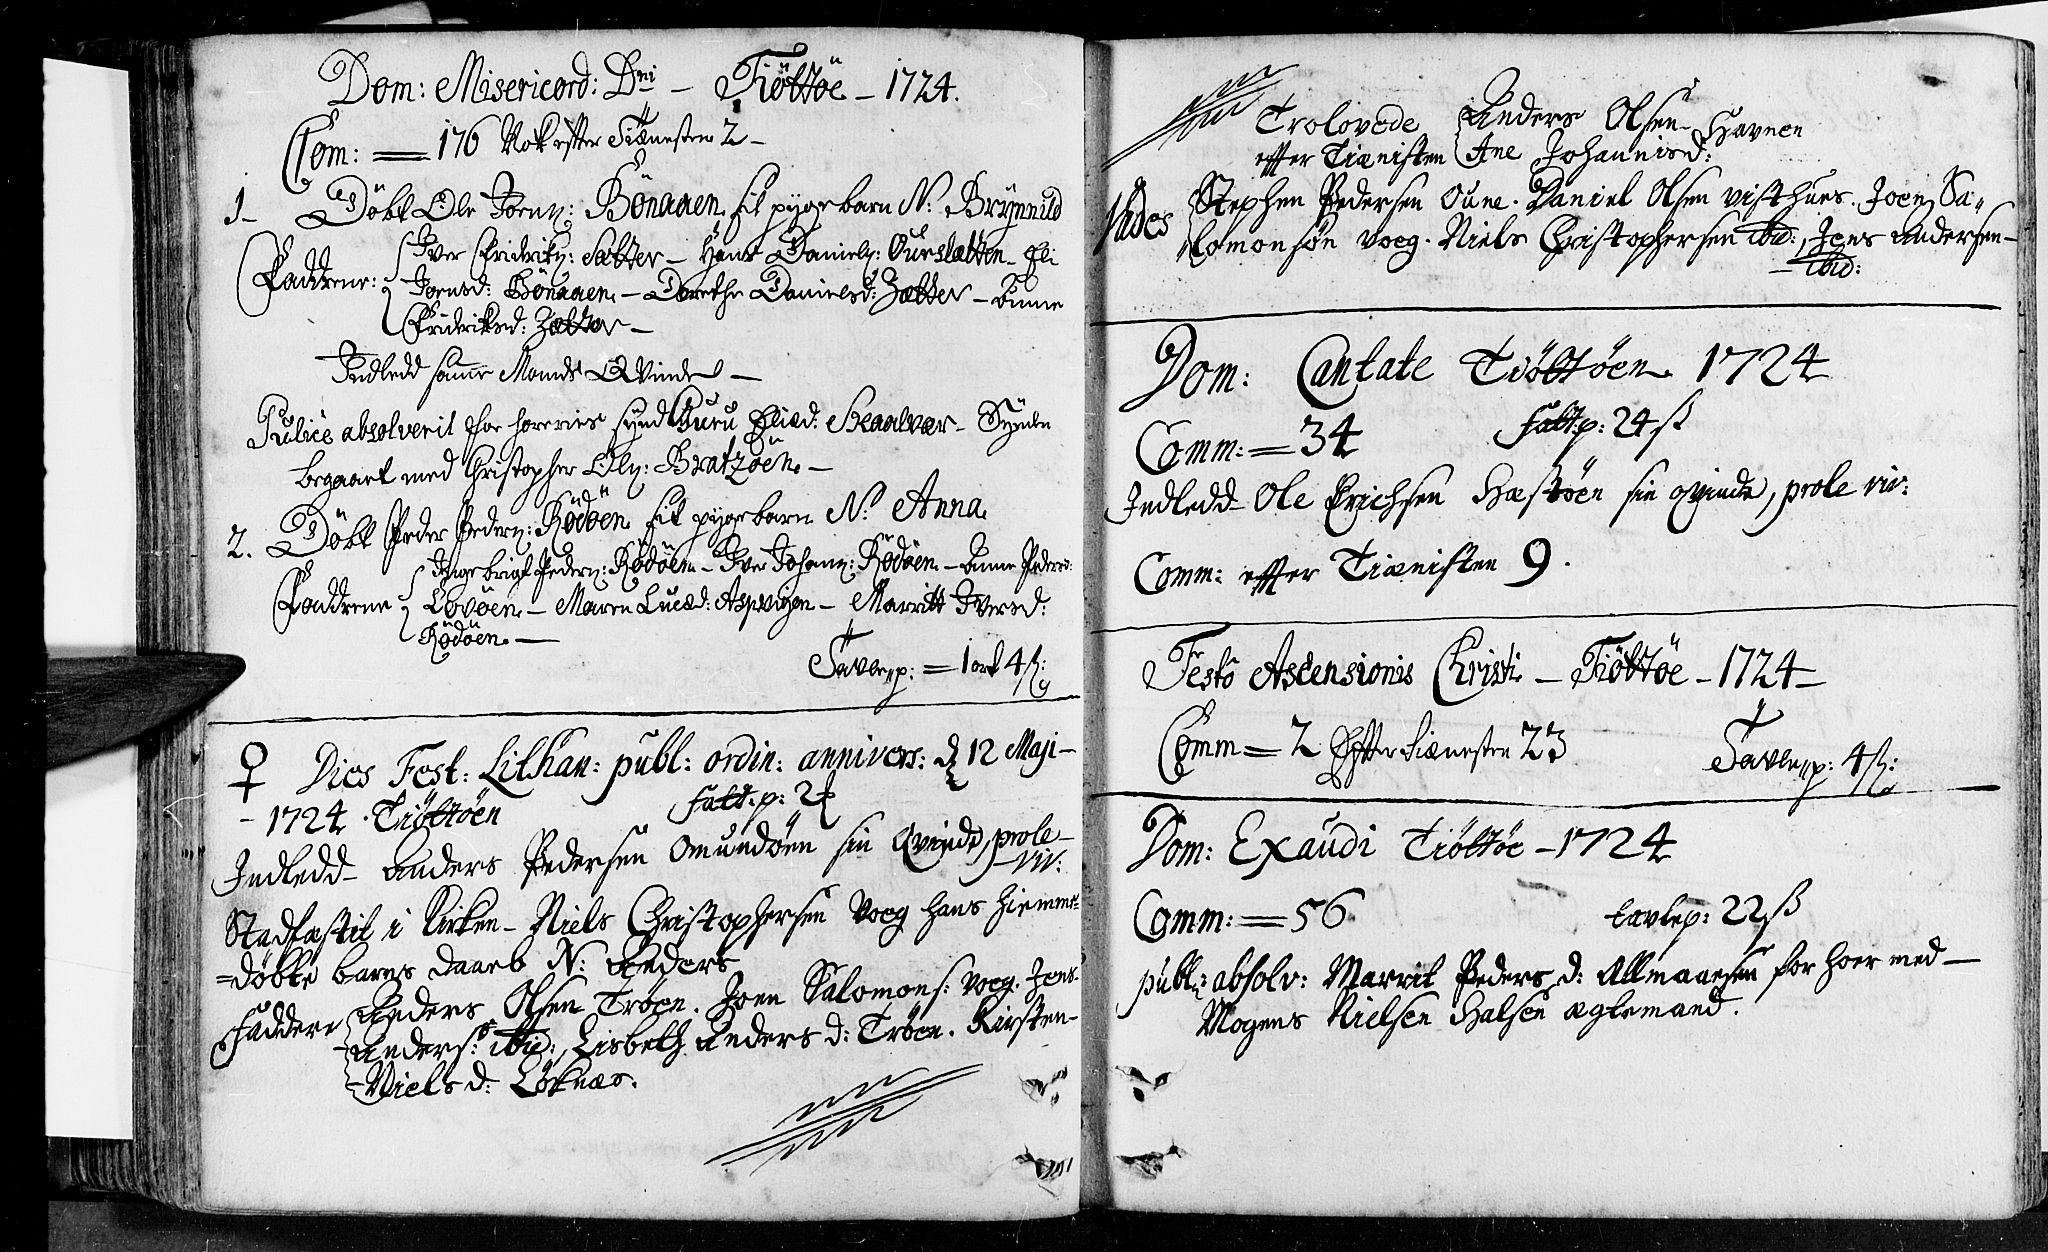 Dom: Misericord: Dni – Tiöttöe – 1724.
Com: = 176 Nok efter Tiænesten 2 –
1 – Döbt Ole Jonn: Bönaaen sit pygebarn N: Brÿnnild
Faddrene: Iver Fridrikn: Sætter – Hans Danieln: Ourslætten – Eli
Jonsd: Bönaaen – Dorethe Danielsd: Zætter – Anne
Fridriksd: Zætter –
Indledd samme Mands Qvinde –
Pulice absolverit for horeries synd Guru Eliæd: Skaalvær – Synden
begaaet med Christopher Oln: Bratzöen –
2. Döbt Peder Pedern: Rödöen sit pygebarn N: Anna
Faddrene Ingebrigt Pedern: Rödöen – Iver Johann: Rödöen – Anne Peders:
Lovöen – Maren Lucæd: Aspvigen – Marritt Iversd:
Rödöen –
Tavlep: = 1 ort 4 ß:
♀ Dies Fest: Lithan: publ: ordin: annivers: d 12 Maji –
– 1724. Tiöttöen Fatt: p: 2
Indledd – Anders Pedersen Omundöen sin qvinde, prole –
– viv:
Stadfæstit i Kirken – Niels Christophersen Voeg hans hiemme
= döbte barns daab N: Anders
Faddere Anders Olsen Tröen. Joen Salomons: Voeg. Jens
Anders: ibid: Lisbeth Anders d: Tröen. Kirsten –
– Niels d: Löknæs.
Trolovede Anders Olsen – Havnen
effter Tiænisten Ane Johannisd:
Vades Stephen Pedersen Oune. Daniel Olsen visthues. Joen Sa„
„lomonsön voeg. Niels Christophersen ibid: Jens Andersen –
– ibid:
Dom: Cantate Tiöttöen 1724
Comm: = 34 Fatt: p: 24 ß
Indledd – Ole Erichsen Hæstöen sin qvinde, prole viv:
Comm: effter Tiænisten 9.
Festo Ascensionis Christi – Tiöttöe – 1724 –
Comm = 2 Effter Tiænesten 23 Tavlep: 4 ß:
Dom: Exaudi Tiöttöe – 1724
Comm: = 56 tavlep: 22 ß
publ: absolv: Marrit Peders d: Allmaarsen for hoer med –
Mogens Nielsen Halsen ægtemand.